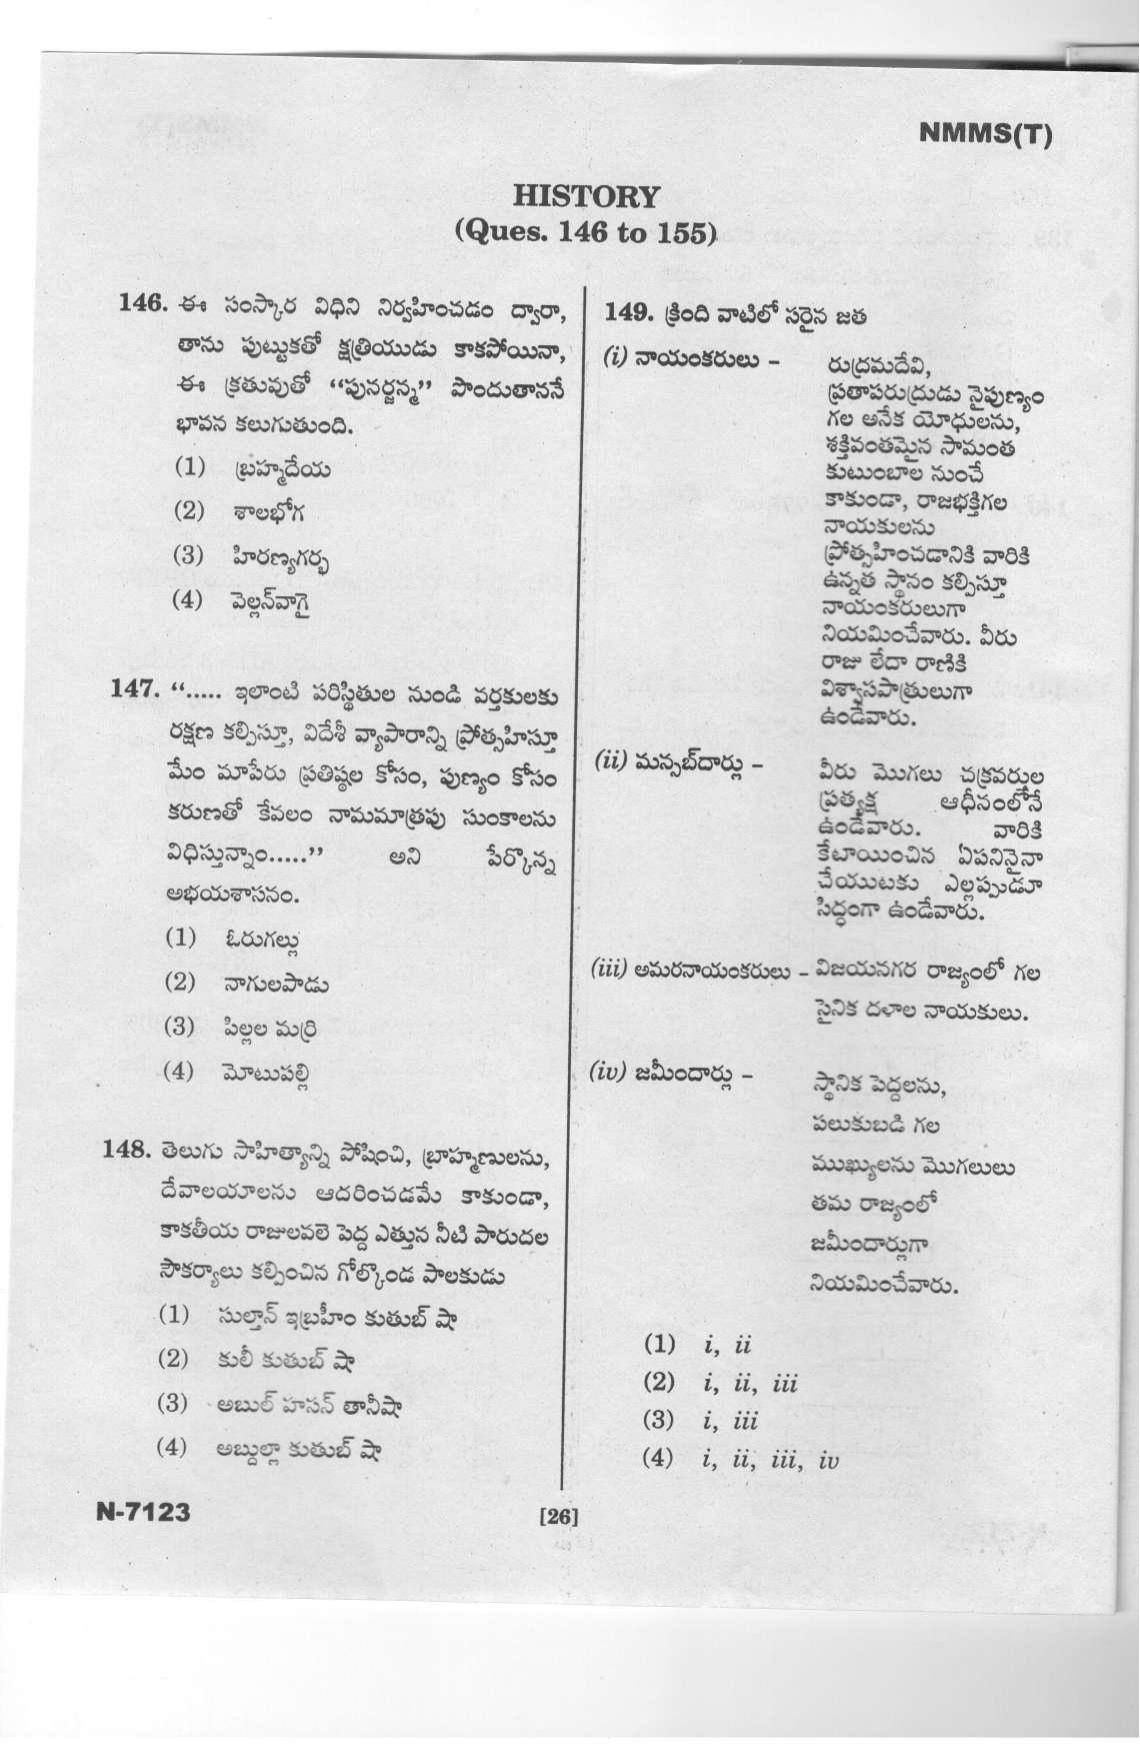 NMMS(T)
HISTORY
(Ques. 146 to 155)
146. ఈ సంస్కార విధిని నిర్వహించడం ద్వారా,
తాను పుట్టుకతో క్షత్రియుడు కాకపోయినా,
ఈ క్రతువుతో “పునర్జన్మ” పొందుతాననే
భావన కలుగుతుంది.
(1) బ్రహ్మదేయ
(2) శాలభోగ
(3) హిరణ్యగర్భ
(4) వెల్లన్‌వాగై
147. “..... ఇలాంటి పరిస్థితుల నుండి వర్తకులకు
రక్షణ కల్పిస్తూ, విదేశీ వ్యాపారాన్ని ప్రోత్సహిస్తూ
మేం మాపేరు ప్రతిష్ఠల కోసం, పుణ్యం కోసం
కరుణతో కేవలం నామమాత్రపు సుంకాలను
విధిస్తున్నాం.....” అని పేర్కొన్న
అభయశాసనం.
(1) ఓరుగల్లు
(2) నాగులపాడు
(3) పిల్లల మర్రి
(4) మోటుపల్లి
148. తెలుగు సాహిత్యాన్ని పోషించి, బ్రాహ్మణులను,
దేవాలయాలను ఆదరించడమే కాకుండా,
కాకతీయ రాజులవలె పెద్ద ఎత్తున నీటి పారుదల
సౌకర్యాలు కల్పించిన గోల్కొండ పాలకుడు
(1) సుల్తాన్ ఇబ్రహీం కుతుబ్ షా
(2) కులీ కుతుబ్ షా
(3) అబుల్ హసన్ తానీషా
(4) అబ్దుల్లా కుతుబ్ షా
149. క్రింది వాటిలో సరైన జత
(i) నాయంకరులు – రుద్రమదేవి,
ప్రతాపరుద్రుడు నైపుణ్యం
గల అనేక యోధులను,
శక్తివంతమైన సామంత
కుటుంబాల నుంచే
కాకుండా, రాజభక్తిగల
నాయకులను
ప్రోత్సహించడానికి వారికి
ఉన్నత స్థానం కల్పిస్తూ
నాయంకరులుగా
నియమించేవారు. వీరు
రాజు లేదా రాణికి
విశ్వాసపాత్రులుగా
ఉండేవారు.
(ii) మన్సబ్‌దార్లు – వీరు మొగలు చక్రవర్తుల
ప్రత్యక్ష ఆధీనంలోనే
ఉండేవారు. వారికి
కేటాయించిన ఏపనినైనా
చేయుటకు ఎల్లప్పుడూ
సిద్ధంగా ఉండేవారు.
(iii) అమరనాయంకరులు – విజయనగర రాజ్యంలో గల
సైనిక దళాల నాయకులు.
(iv) జమీందార్లు – స్థానిక పెద్దలను,
పలుకుబడి గల
ముఖ్యులను మొగలులు
తమ రాజ్యంలో
జమీందార్లుగా
నియమించేవారు.
(1) i, ii
(2) i, ii, iii
(3) i, iii
(4) i, ii, iii, iv
N-7123
[26]